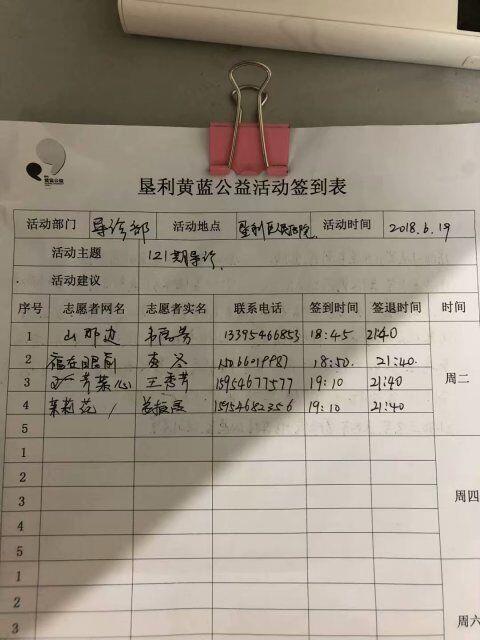 黄蓝公益
垦利黄蓝公益活动签到表
活动部门 导诊部 活动地点 垦利区人民医院 活动时间 2018.6.19
活动主题 121期导诊
活动建议
序号 志愿者网名 志愿者实名 联系电话 签到时间 签退时间 时间
1 山那边 13395466853 18:45 21:40
2 福在眼前 李冬 15066019987 18:50. 21:40.
3 芳菜心 王秀芳 15954677577 19:10 21:40
周二
4 茉莉花 15954682356 19:10 21:40
5
1
2
3
周四
4
5
1
2
周六
3